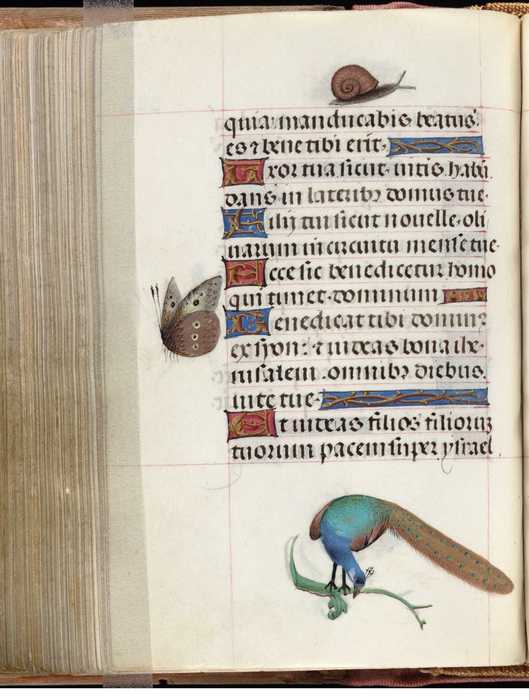 quia manducabis beatus
es ⁊ bene tibi erit.
Uxor tua sicut uitis habū
dans in lateribꝫ domus tue.
Filij tui sicut nouelle oli
uarum in circuitu mense tue.
Ecce sic benedicetur homo
qui timet dominum
Benedicat tibi dominꝰ
ex syon: ⁊ uideas bona ihe
rusalem omnibꝫ diebus
uite tue.
Et uideas filios filiorum
tuorum pacem super ysrael